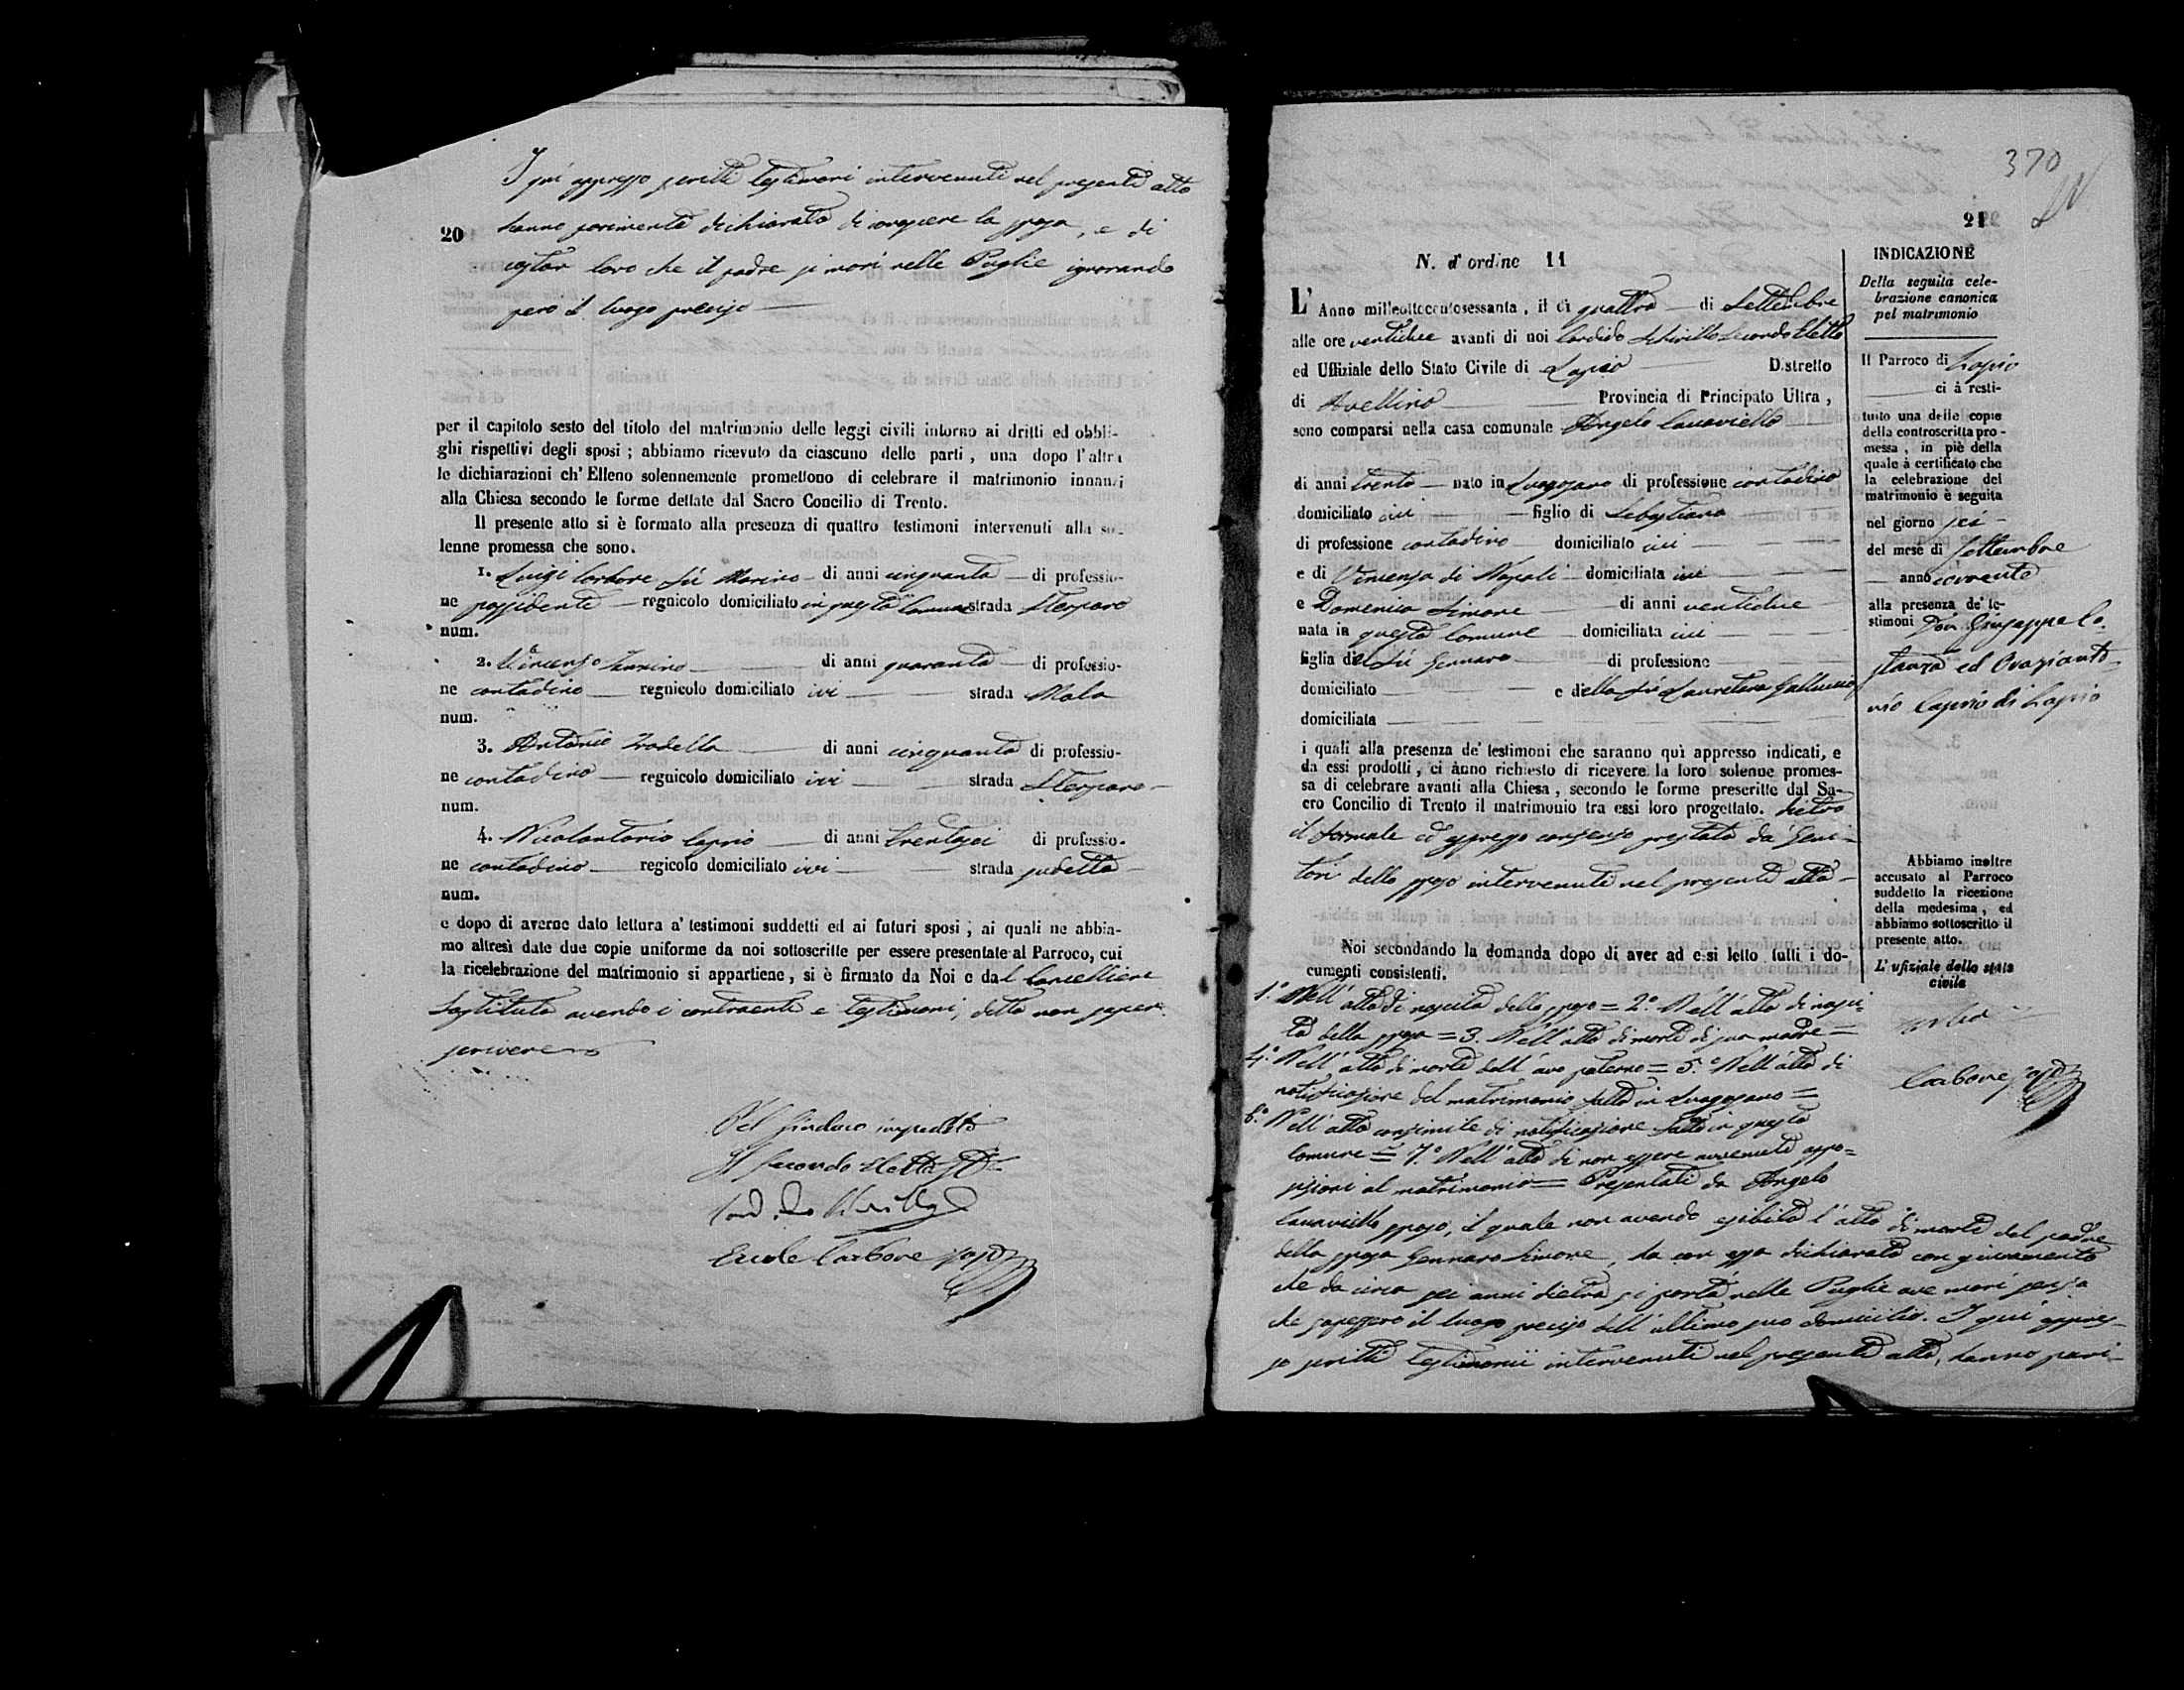 I qui appresso scritti testimoni intervenuti nel presente atto
20
hanno parimente dichiarato di conoscere la sposa, e di
costar loro che il padre si morì nelle Puglie ignorando
però il luogo preciso
per il capitolo sesto del titolo del matrimonio delle leggi civili intorno ai dritti ed obbli-
ghi rispettivi degli sposi ; abbiamo ricevuto da ciascuno delle parti , una dopo l'altra
le dichiarazioni ch' Elleno solennemente promettono di celebrare il matrimonio innanzi
alla Chiesa secondo le forme dettate dal Sacro Concilio di Trento.
Il presente atto si è formato alla presenza di quattro testimoni intervenuti alla so-
lenne promessa che sono.
1. Luigi Carbone fu Marino di anni cinquanta di professio-
ne possidente regnicolo domiciliato in questo Comune strada
num.
2. Vincenzo di anni quaranta di professio-
ne contadino regnicolo domiciliato ivi strada Mala
num.
3. Antonio di anni cinquanta di professio-
ne contadino regnicolo domiciliato ivi strada
num.
4. Nicolantonio Caprio di anni trentasei di professio-
ne contadino regicolo domiciliato ivi strada
num.
e dopo di averne dato lettura a' testimoni suddetti ed ai futuri sposi ; ai quali ne abbia-
mo altresì date due copie uniforme da noi sottoscritte per essere presentate al Parroco, cui
la ricelebrazione del matrimonio si appartiene , si è firmato da Noi e dal Cancelliere
Sostituto avendo i contraenti e testimoni, detto non sapere
scrivere
Pel Sindaco impedito
Il secondo Eletto
Carbone
370
21
N. d' ordine 11
L' Anno milleottocentosessanta , il dì quattro di Settembre
alle ore ventidue avanti di noi Candido Schirillo Secondo Eletto
ed Uffiziale dello Stato Civile di Lapio D.stretto
di Avellino Provincia di Principato Ultra ,
sono comparsi nella casa comunale Angelo
di anni trenta nato in Luogosano di professione contadino
domiciliato ivi figlio di Sebastiano
di professione contadino domiciliato ivi
e di Vincenza di Napoli domiciliata ivi
e Domenica Simone di anni ventidue
nata in questo Comune domiciliata ivi
figlia del fu Gennaro di professione
domiciliato e della fu Lauretana Galluccio
domiciliata
i quali alla presenza de' testimoni che saranno quì appresso indicati, e
da essi prodotti , ci ànno richiesto di ricevere la loro solenne promes-
sa di celebrare avanti alla Chiesa , secondo le forme prescritte dal Sa-
cro Concilio di Trento il matrimonio tra essi loro progettato. Dietro
il formale ed espresso consenso prestato da Geni-
tori dello sposo intervenuti nel presente atto
Noi secondando la domanda dopo di aver ad essi letto tutti i do-
cumenti consistenti.
1.° Nell' atto di nascita dello sposo = 2.° Nell' atto di nasci-
ta della sposa = 3. Nell' atto di morte di sua madre =
4.° Nell' atto di morte dell' avo paterno = 5.° Nell' atto di
notificazione del matrimonio fatta in Luogosano =
6.° Nell' atto consimile di notificazione fatta in questo
Comune = 7.° Nell' atto di non essere avvenute oppo=
sizioni al matrimonio = Presentati da Angelo
sposo, il quale non avendo esibito l' atto di morte del padre
della sposa Gennaro Simone, ha con essa dichiarato con giuramento
che da circa sei anni dietro si portò nelle Puglie ove morì senza
che sapessero il luogo preciso dell' ultimo suo domicilio. I qui appres-
so scritti testimonii intervenuti nel presente atto, hanno pari-
INDICAZIONE
Della seguita cele-
brazione canonica
pel matrimonio
Il Parroco di Lapio
ci à resti-
tuito una delle copie
della controscritta pro-
messa , in piè della
quale à certificato che
la celebrazione del
matrimonio è seguita
nel giorno sei
del mese di Settembre
anno corrente
alla presenza de' te-
stimoni Don Giuseppe Co-
stanza ed Orazianto-
nio Caprio di Lapio
Abbiamo inoltre
accusato al Parroco
suddetto la ricezione
della medesima , ed
abbiamo sottoscritto il
presente atto.
L' ufiziale dello stato
civile
Carbone